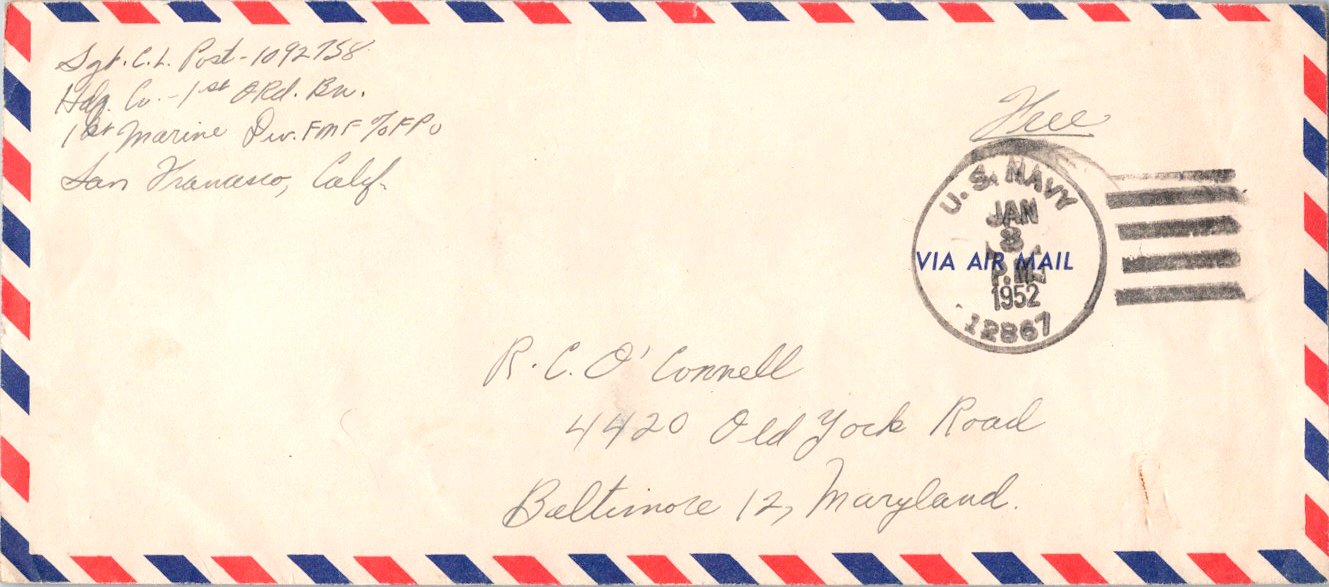 Sgt. C.L. Post - 1092758
Hdq. Co. - 1st ORd. Bn.
1st Marine Div. FMF c/o FPO
San Francisco, Calif.
Free
U.S. NAVY
JAN
8
P.M.
1952
12867
VIA AIR MAIL
R.C. O'Connell
4420 Old York Road
Baltimore 12, Maryland.